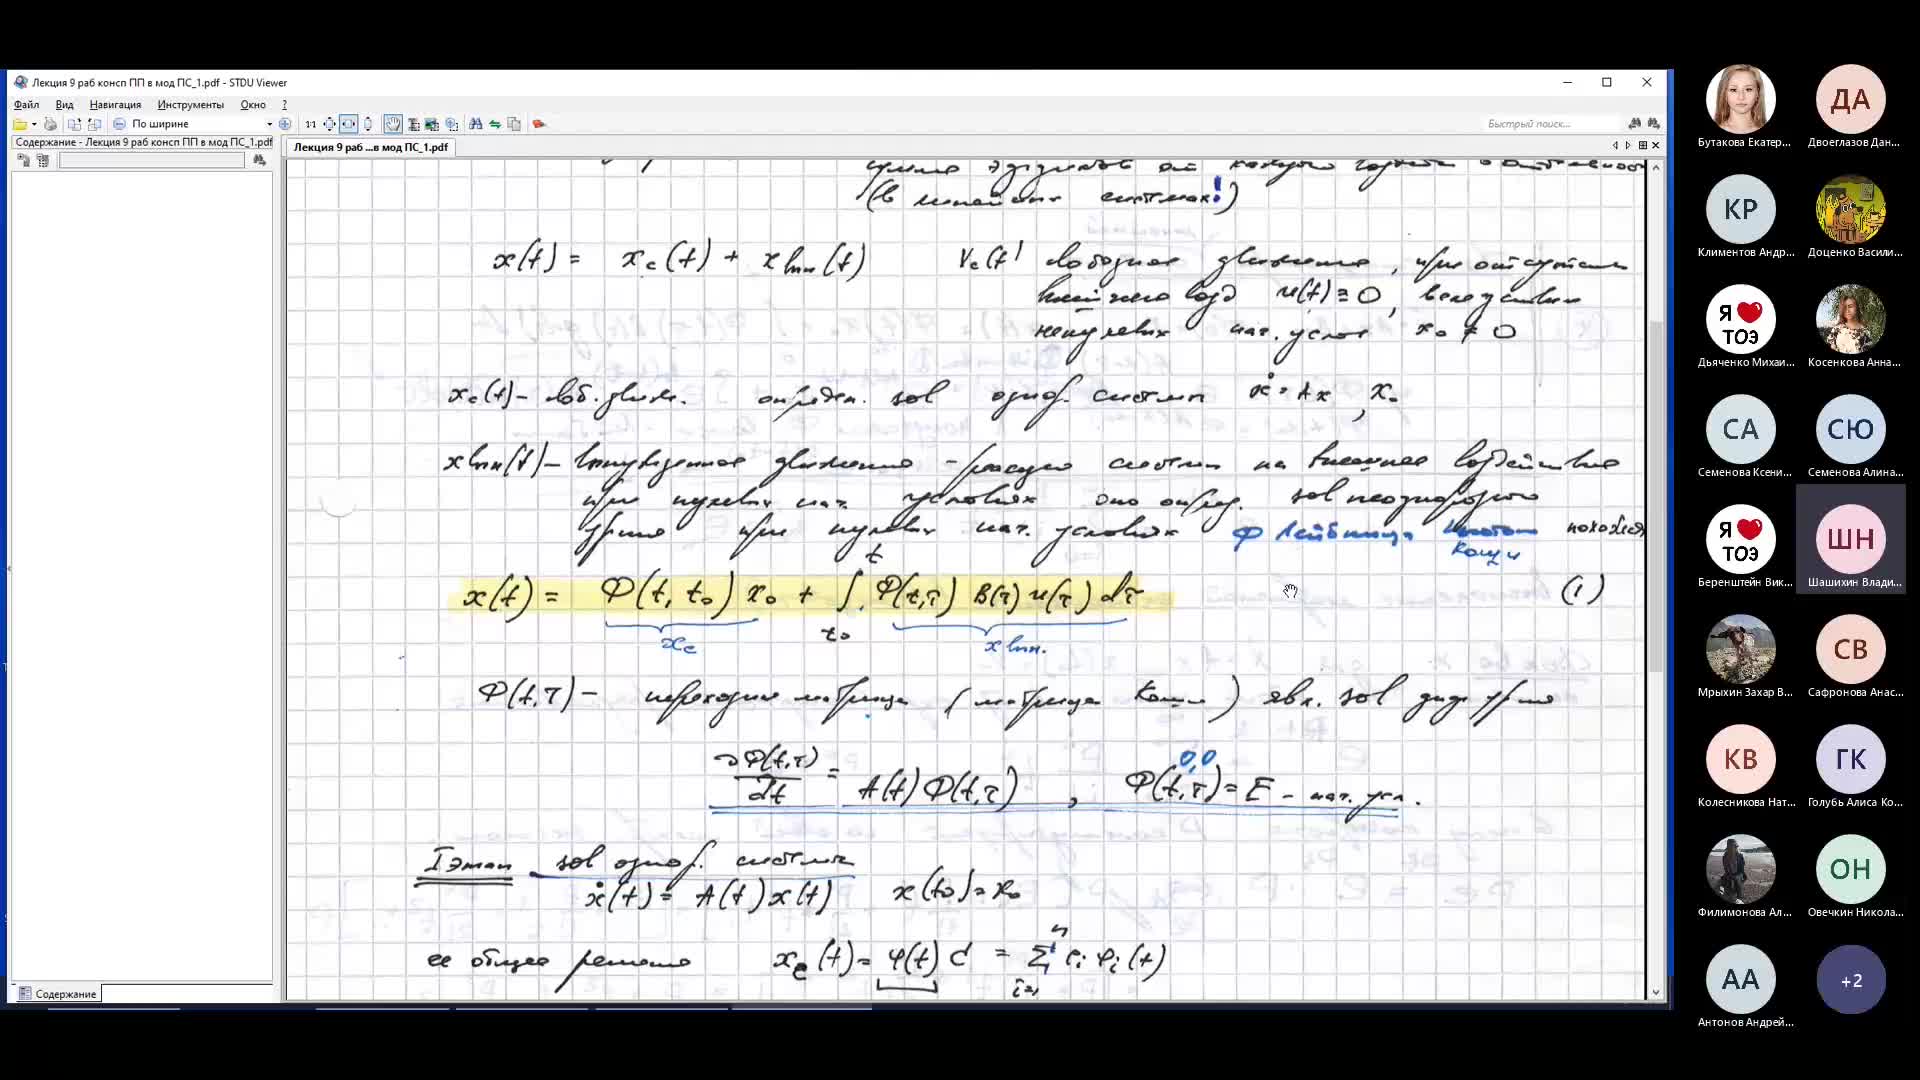 Лекция 9 раб консп ПП в мод ПС_1.pdf - STDU Viewer
Файл Вид Навигация Инструменты Окно ?
По ширине
1:1
Быстрый поиск...
Содержание - Лекция 9 раб консп ПП в мод ПС_1.pdf
Лекция 9 раб ...в мод ПС_1.pdf
(в линейных системах!)
x(t) = x_c(t) + x_вын(t) V_c(t) свободное движение, при отсутствии
внешнего возд u(t) ≡ 0, вследствие
ненулевых нач. услов x₀ ≠ 0
x_c(t) - своб. движ. определ. sol однор. системы ẋ = Ax, x₀
x_вын(t) - вынужденное движение - реакция системы на внешнее воздействие
при нулевых нач. условиях оно опред. sol неоднородного
ур-ния при нулевых нач. условиях ф Лейбница Коши
x(t) = Φ(t, t₀) x₀ + ∫_{t₀}^{t} Φ(t,τ) B(τ) u(τ) dτ (1)
x_c x_вын.
Φ(t,τ) - переходная матрица (матрица Коши) явл. sol диф ур-ния
∂Φ(t,τ)/dt = A(t) Φ(t,τ), Φ(t,τ) = E - нач. усл.
0,0
I этап sol однор. системы
ẋ(t) = A(t) x(t) x(t₀) = x₀
ее общее решение x_c(t) = φ(t) C = Σ_{i=1}^{n} c_i φ_i(t)
Содержание
Бутакова Екатер...
ДА
Двоеглазов Дан...
КР
Климентов Андр...
Доценко Васили...
Я ❤ ТОЭ
Дьяченко Михаи...
Косенкова Анна...
СА
Семенова Ксени...
СЮ
Семенова Алина...
Я ❤ ТОЭ
Беренштейн Вик...
ШН
Шашихин Влади...
Мрыхин Захар В...
СВ
Сафронова Анас...
КВ
Колесникова Нат...
ГК
Голубь Алиса Ко...
Филимонова Ал...
ОН
Овечкин Никола...
АА
Антонов Андрей...
+2